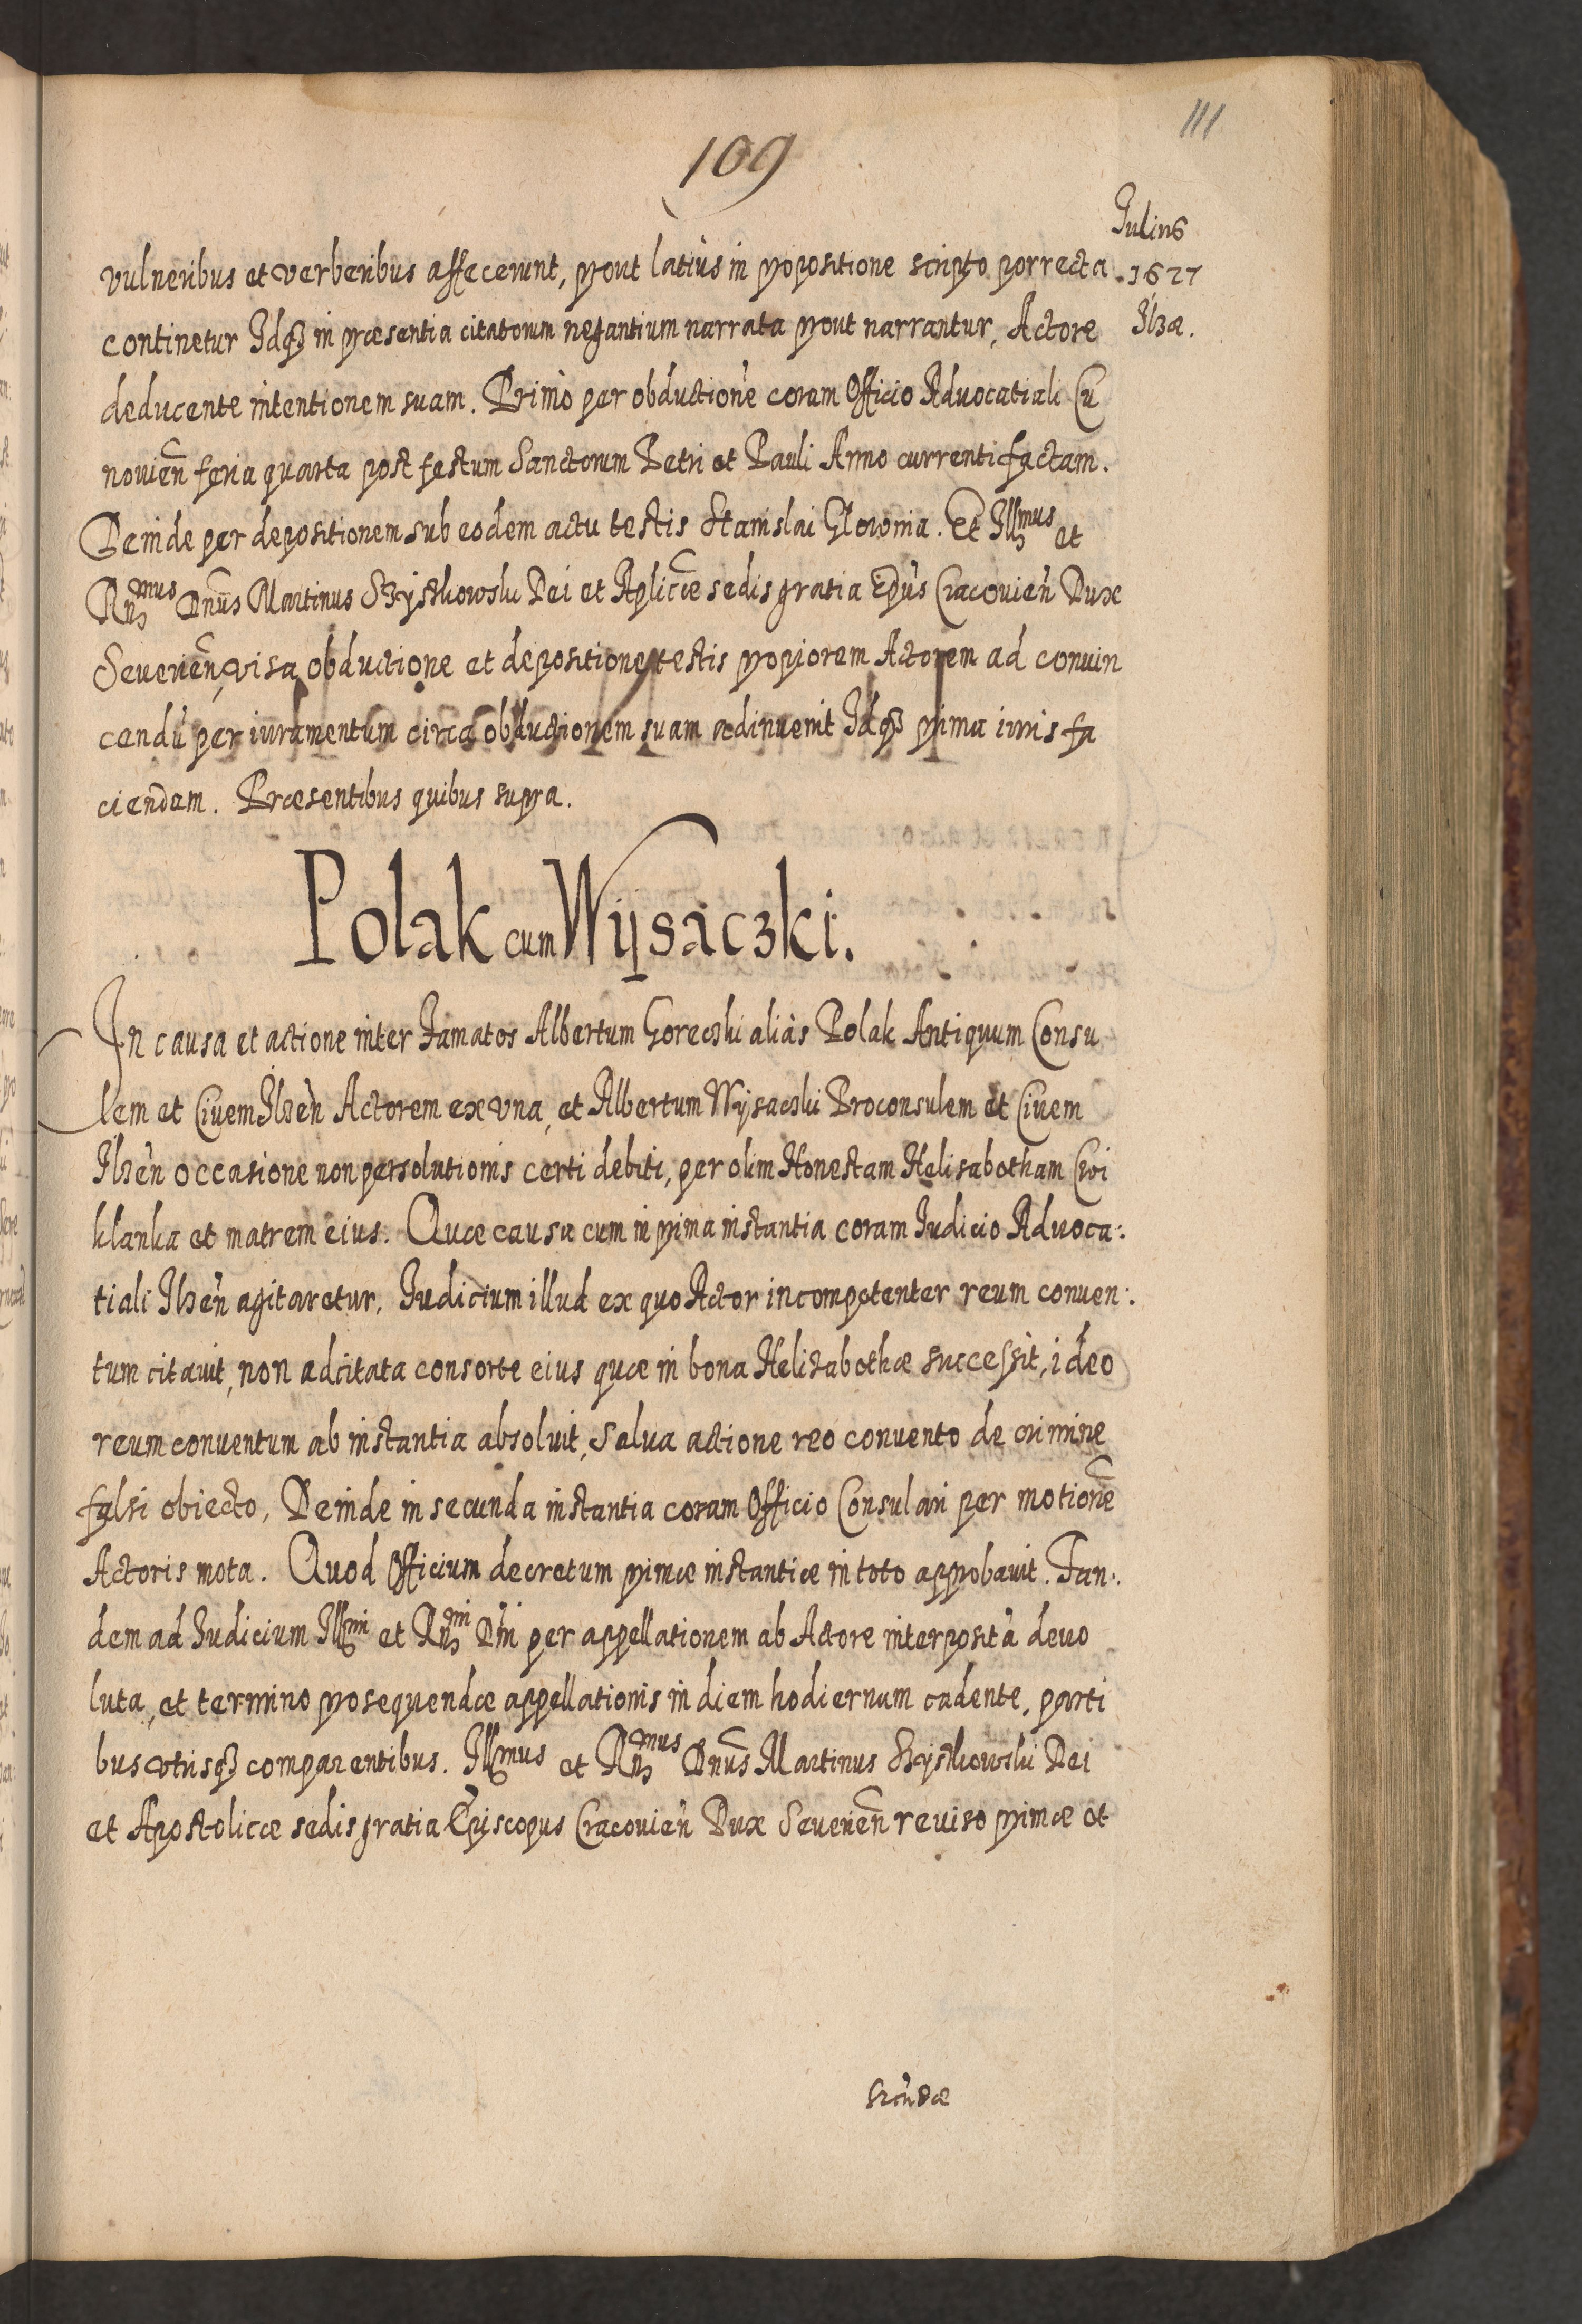 111
109
Julius
1627
Jlzæ.
vulneribus et verberibus affecerunt, prout latiùs in propositione scripto porrecta
continetur Jdq3 in præsentia citatorum negantium narrata prout narrantur, Actore
deducente intentionem suam. Primò per obductionē coram Officio Advocatiali Cu
novien̄ feria quarta post festum Sanctorum Petri et Pauli Anno currenti factam.
Deinde per depositionem sub eodem actu testis Stanislai Glownia. Et Jllmus et
Rndmus Dnūs Martinus Szyszkowski Dei et Aplicæ sedis gratia Epūs Cracovien̄ Dux
Severien̄, visa obductione et depositione testis propiorem Actorem ad convin
cendū per iuramentum circa obductionem suam adinuenit Jdq3 prima iuris fa
ciendam. Præsentibus quibus supra.
Polak cum Wÿsaczki.
Jn causa et actione inter Famatos Albertum Goreczki aliàs Polak Antiquum Consu
lem et Ciuem Jlzen̄ Actorem ex vna, et Albertum Wÿsaczki Proconsulem et Ciuem
Jlzen̄ occasione non persolutionis certi debiti, per olim Honestam Helisabetham Cwi
klanka et matrem eius. Quæ causa cum in prima instantia coram Judicio Advoca:
tiali Jlzen̄ agitaretur, Judicium illud ex quo Actor incompetenter reum conuen:
tum citauit, non adcitata consorte eius quæ in bona Helizabethæ successit, ideo
reum conuentum ab instantia absoluit, Salua actione reo convento de crimine
falsi obiecto, Deinde in secunda instantia coram Officio Consulari per motionē
Actoris mota. Quod Officium decretum primæ instantiæ in toto approbauit. Tan:
dem ad Judicium Jllmi et Rndmi Dn̄i per appellationem ab Actore interpositā devo
luta, et termino prosequendæ appellationis in diem hodiernum cadente, parti
bus vtrisq3 comparentibus. Jllmus et Rndmus Dnūs Martinus Szyszkowski Dei
et Apostolicæ sedis gratia Episcopus Cracovien̄ Dux Severien̄ reviso primæ et
secūdæ